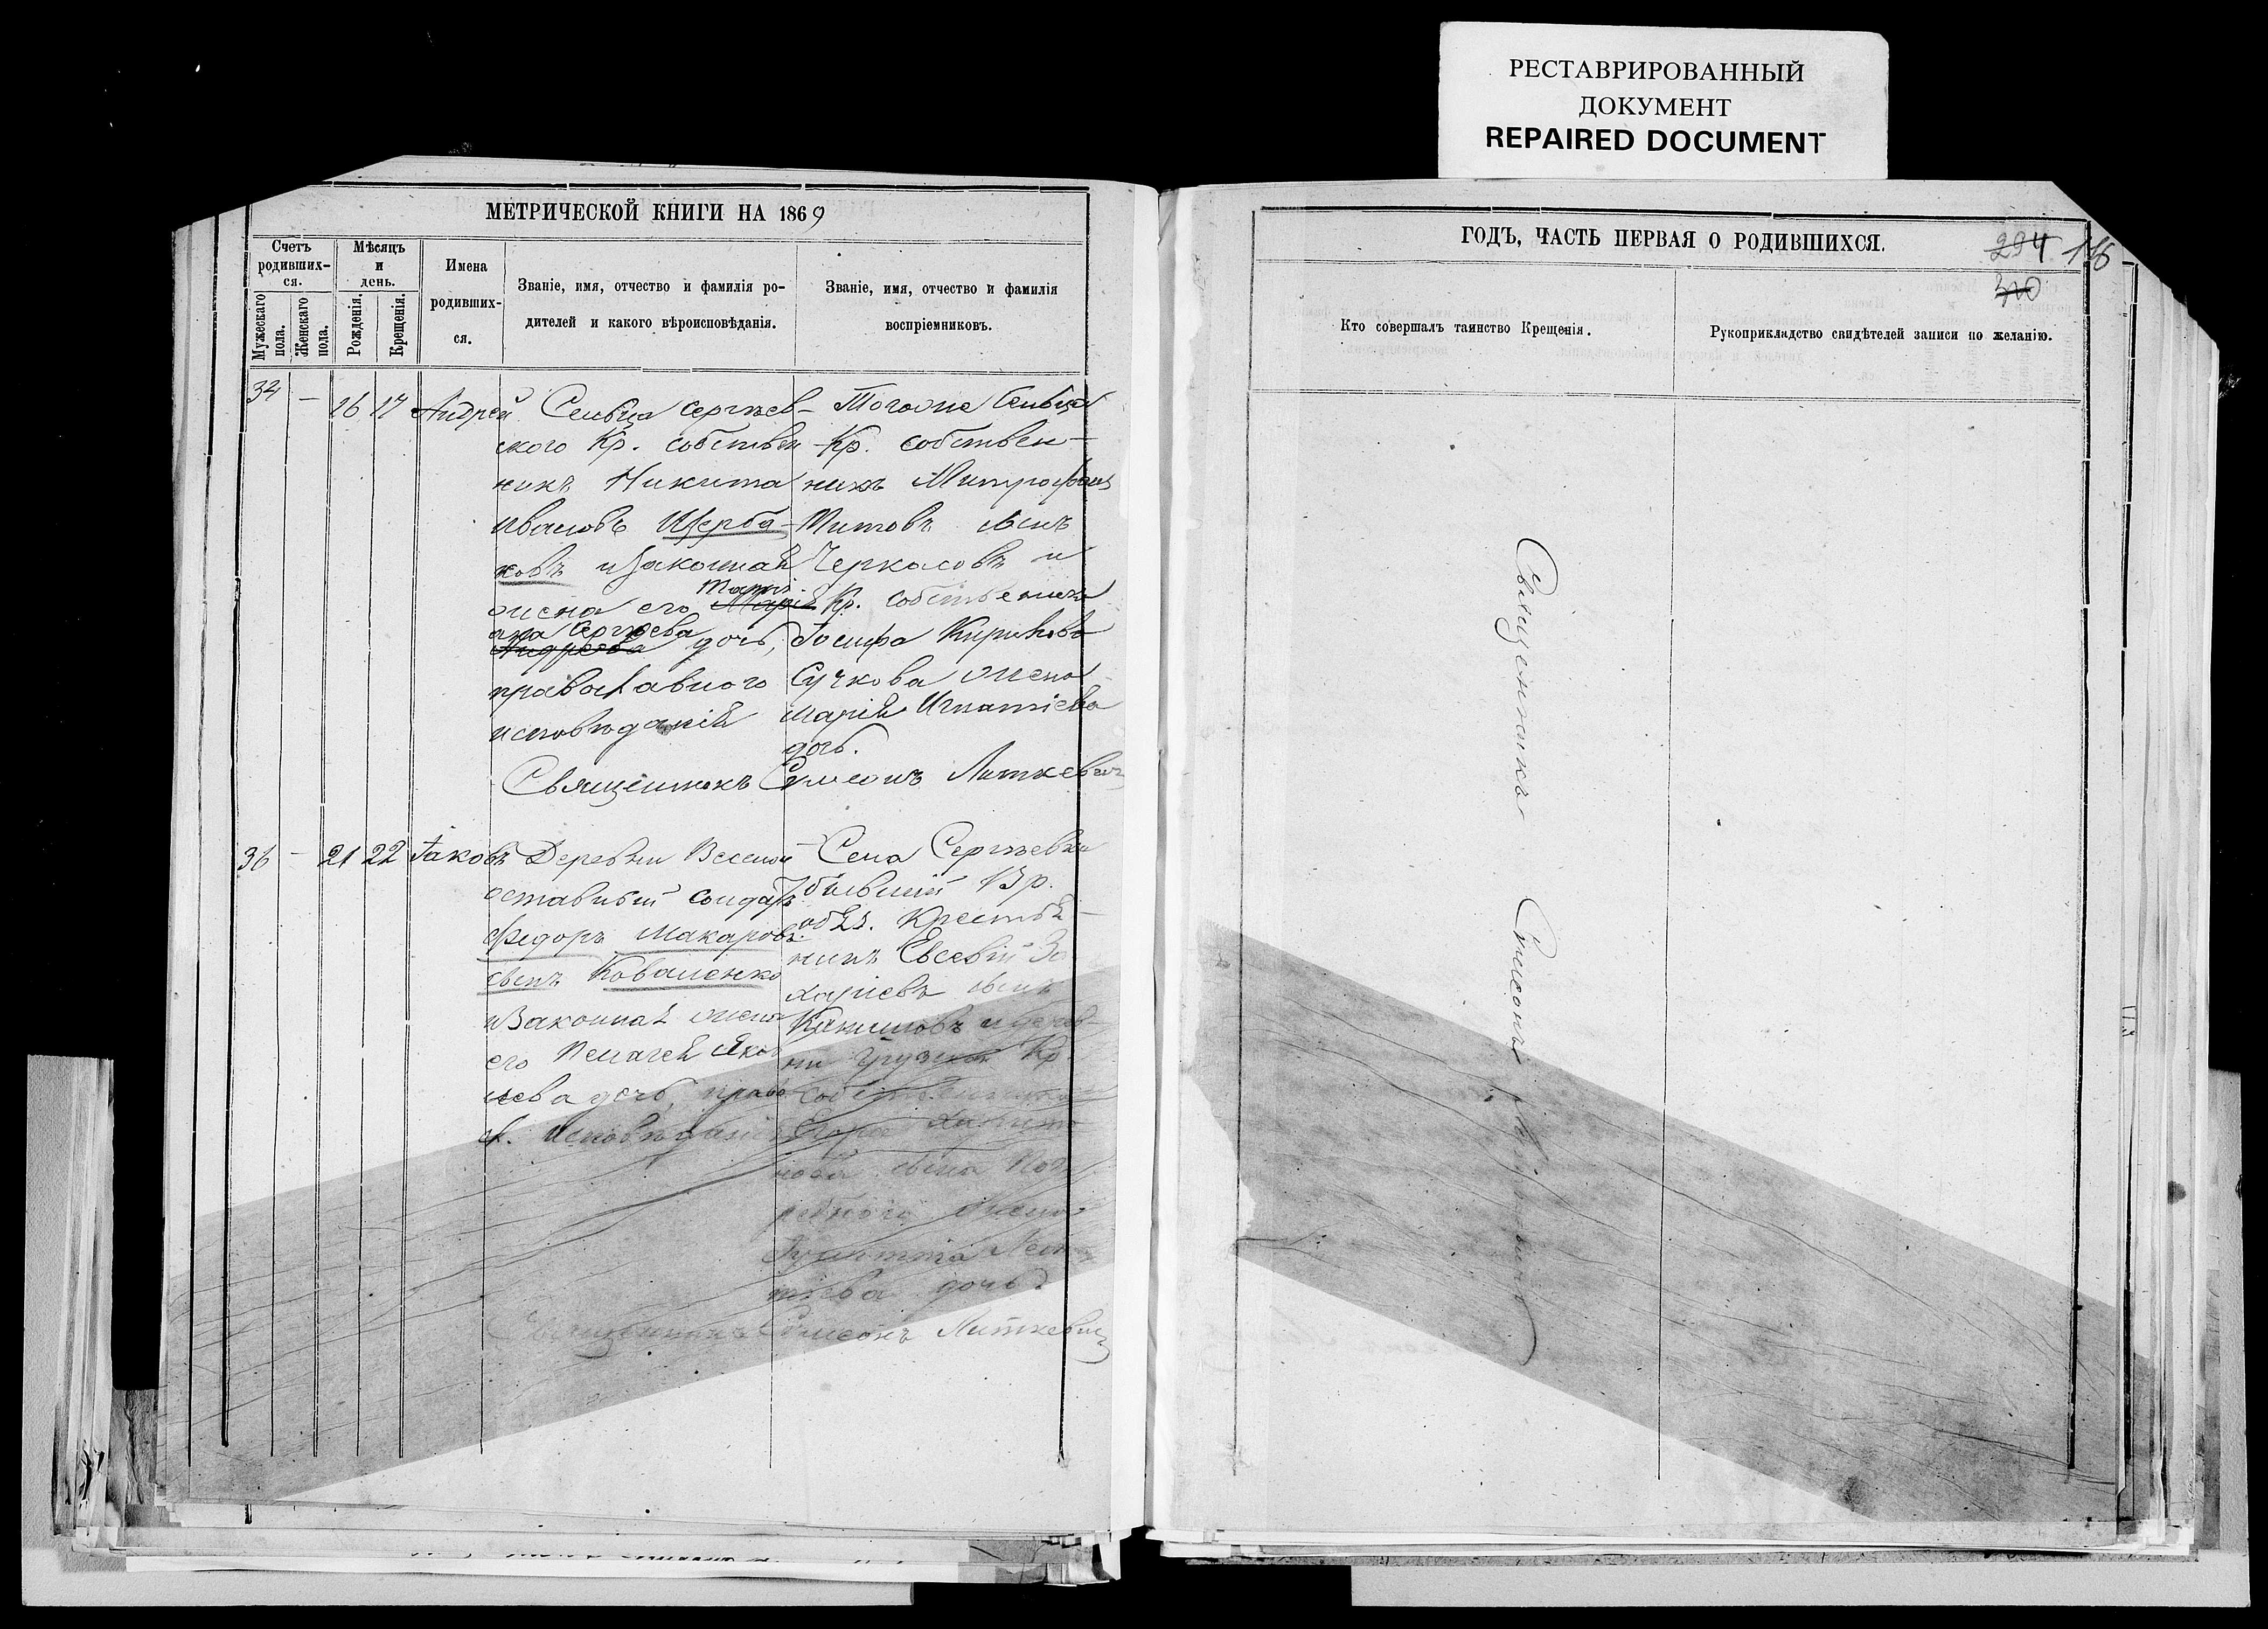 РЕСТАВРИРОВАННЫЙ
ДОКУМЕНТ
REPAIRED DOCUMENT
МЕТРИЧЕСКОЙ КНИГИ НА 1869
Счетъ
родивших-
ся.
Мужескаго
пола.
Женскаго
пола.
Мѣсяцъ
и
день.
Рожденія.
Крещенія.
Имена
родивших-
ся.
Званіе, имя, отчество и фамилія ро-
дителей и какого вѣроисповѣданія.
Званіе, имя, отчество и фамилія
воспріемниковъ.
34 — 16 17 Андрей
Сельца Сергѣев-
ского Кр. собствен
никъ Никита
Ивановъ Щерба-
ковъ и законная
жена его
Сергѣева
Андреева дочь,
православного
исповѣданія
Тогоже Сельца
Кр. собствен-
никъ Митрофан
Титовъ сынъ
Черкасовъ и
Кр. собственника
Іосифа
Сучкова жена
Марія Игнатіева
дочь.
Священникъ Симеонъ Литкевич
36 — 21 22 Іаковъ
Деревни
солдатъ
Федоръ Макаровъ
сынъ Коваленко
и Законная жена
его Пелагея Яков
лева дочь, право
сл. исповѣданія
Села Сергѣевки
бывшій Вр.
обяз. Крестья-
нинъ Евсевій За
харіевъ сынъ
ни Кр.
Егора Харито
нова сына
жена
Леон
тіева дочь
Священникъ Симеонъ Литкевич
ГОДЪ, ЧАСТЬ ПЕРВАЯ О РОДИВШИХСЯ.
294 116
310
Кто совершалъ таинство Крещенія.
Рукоприкладство свидѣтелей записи по желанію.
Священникъ Симеонъ